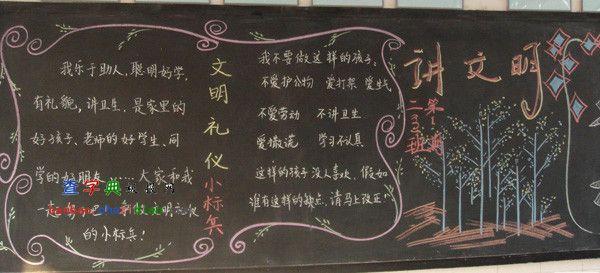 我乐于助人，聪明好学，
有礼貌，讲卫生、是家里的
好孩子、老师的好学生、同
学的好朋友……大家和我
一起 做文明礼仪
的小标兵！
文明礼仪
小标兵
我不要做这样的孩子：
不爱护公物 爱打架 爱生气
不爱劳动 不讲卫生
爱撒谎 学习不认真
这样的孩子没人喜欢，假如
谁有这样的缺点，请马上改正！
讲文明
二班
查字典